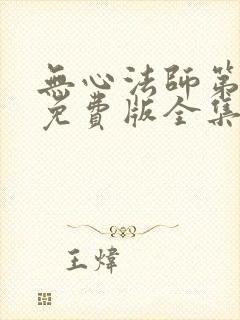 無心法師第
免費版全集
王煒